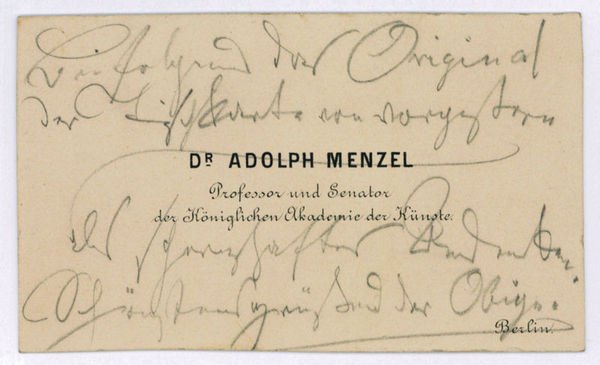 Beifolgend das Original
der Tischkarte von vorgestern
DR ADOLPH MENZEL
Professor und Senator
der Königlichen Akademie der Künste.
als scherzhaftes Andenken.
Schönstens grüßend der Obige.
Berlin.